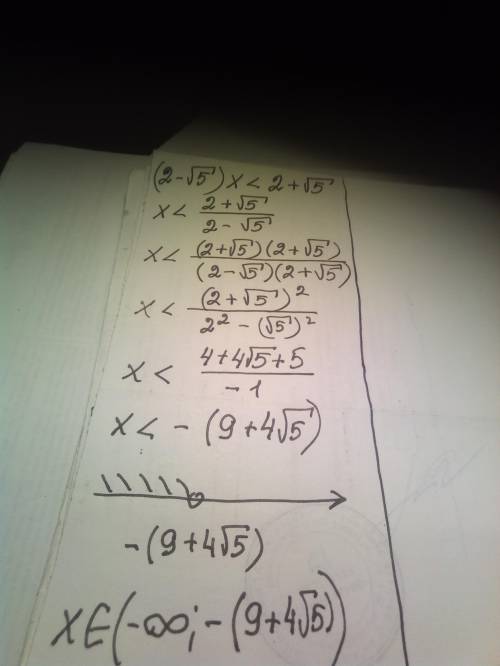 (2-√5)x < 2+√5
x < (2+√5)/(2-√5)
x < ((2+√5)(2+√5))/((2-√5)(2+√5))
x < (2+√5)²/(2²-(√5)²)
x < (4+4√5+5)/(-1)
x < -(9+4√5)
-(9+4√5)
x∈(-∞;-(9+4√5))